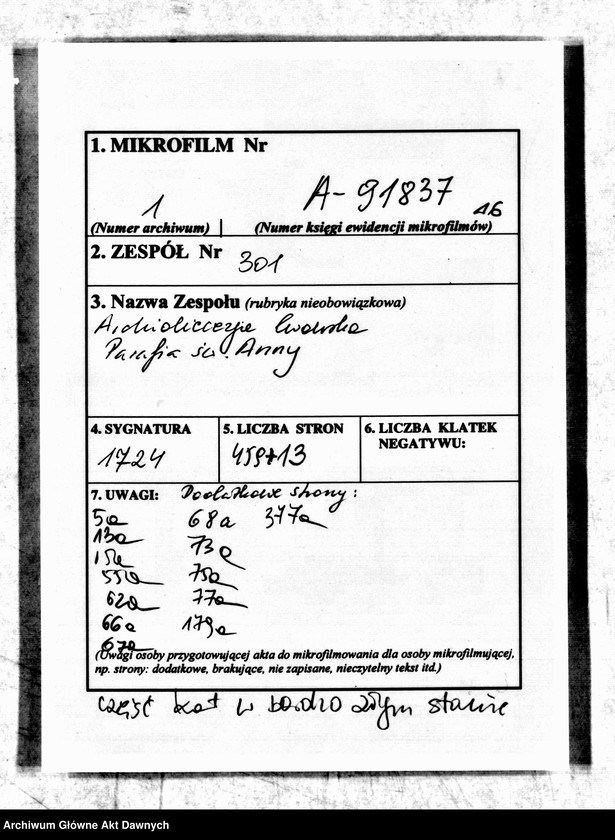 1. MIKROFILM Nr
1 A-91837 16
(Numer archiwum) (Numer księgi ewidencji mikrofilmów)
2. ZESPÓŁ Nr 301
3. Nazwa Zespołu (rubryka nieobowiązkowa)
Archidiecezja Lwowska
Parafia św. Anny
4. SYGNATURA 5. LICZBA STRON 6. LICZBA KLATEK
NEGATYWU:
1724 459+13
7. UWAGI: Dodatkowe strony:
5a 68a 377a
13a 73a
15a 75a
55a 77a
62a 179a
66a
67a
(Uwagi osoby przygotowującej akta do mikrofilmowania dla osoby mikrofilmującej,
np. strony: dodatkowe, brakujące, nie zapisane, nieczytelny tekst itd.)
część kart w bardzo złym stanie
Archiwum Główne Akt Dawnych